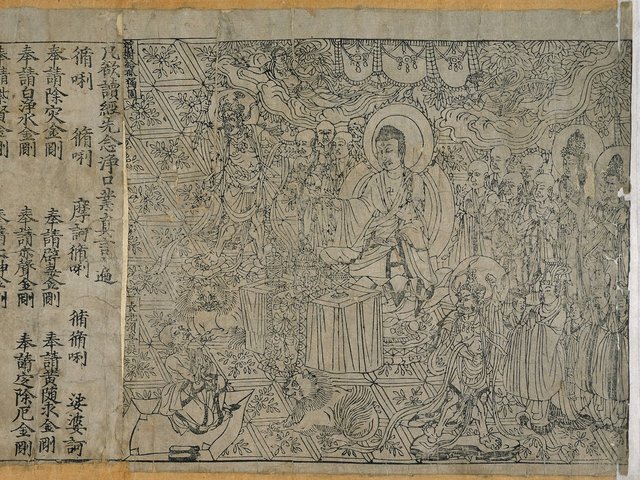 祇樹給孤獨園
長老須菩提
凡欲讀經先念淨口業真言一遍
脩唎 脩唎 摩訶脩唎 脩脩唎 娑婆訶
奉請除灾金剛 奉請辟毒金剛 奉請黃隨求金剛
奉請白淨水金剛 奉請赤聲金剛 奉請定除厄金剛
奉請紫賢金剛 奉請大神金剛